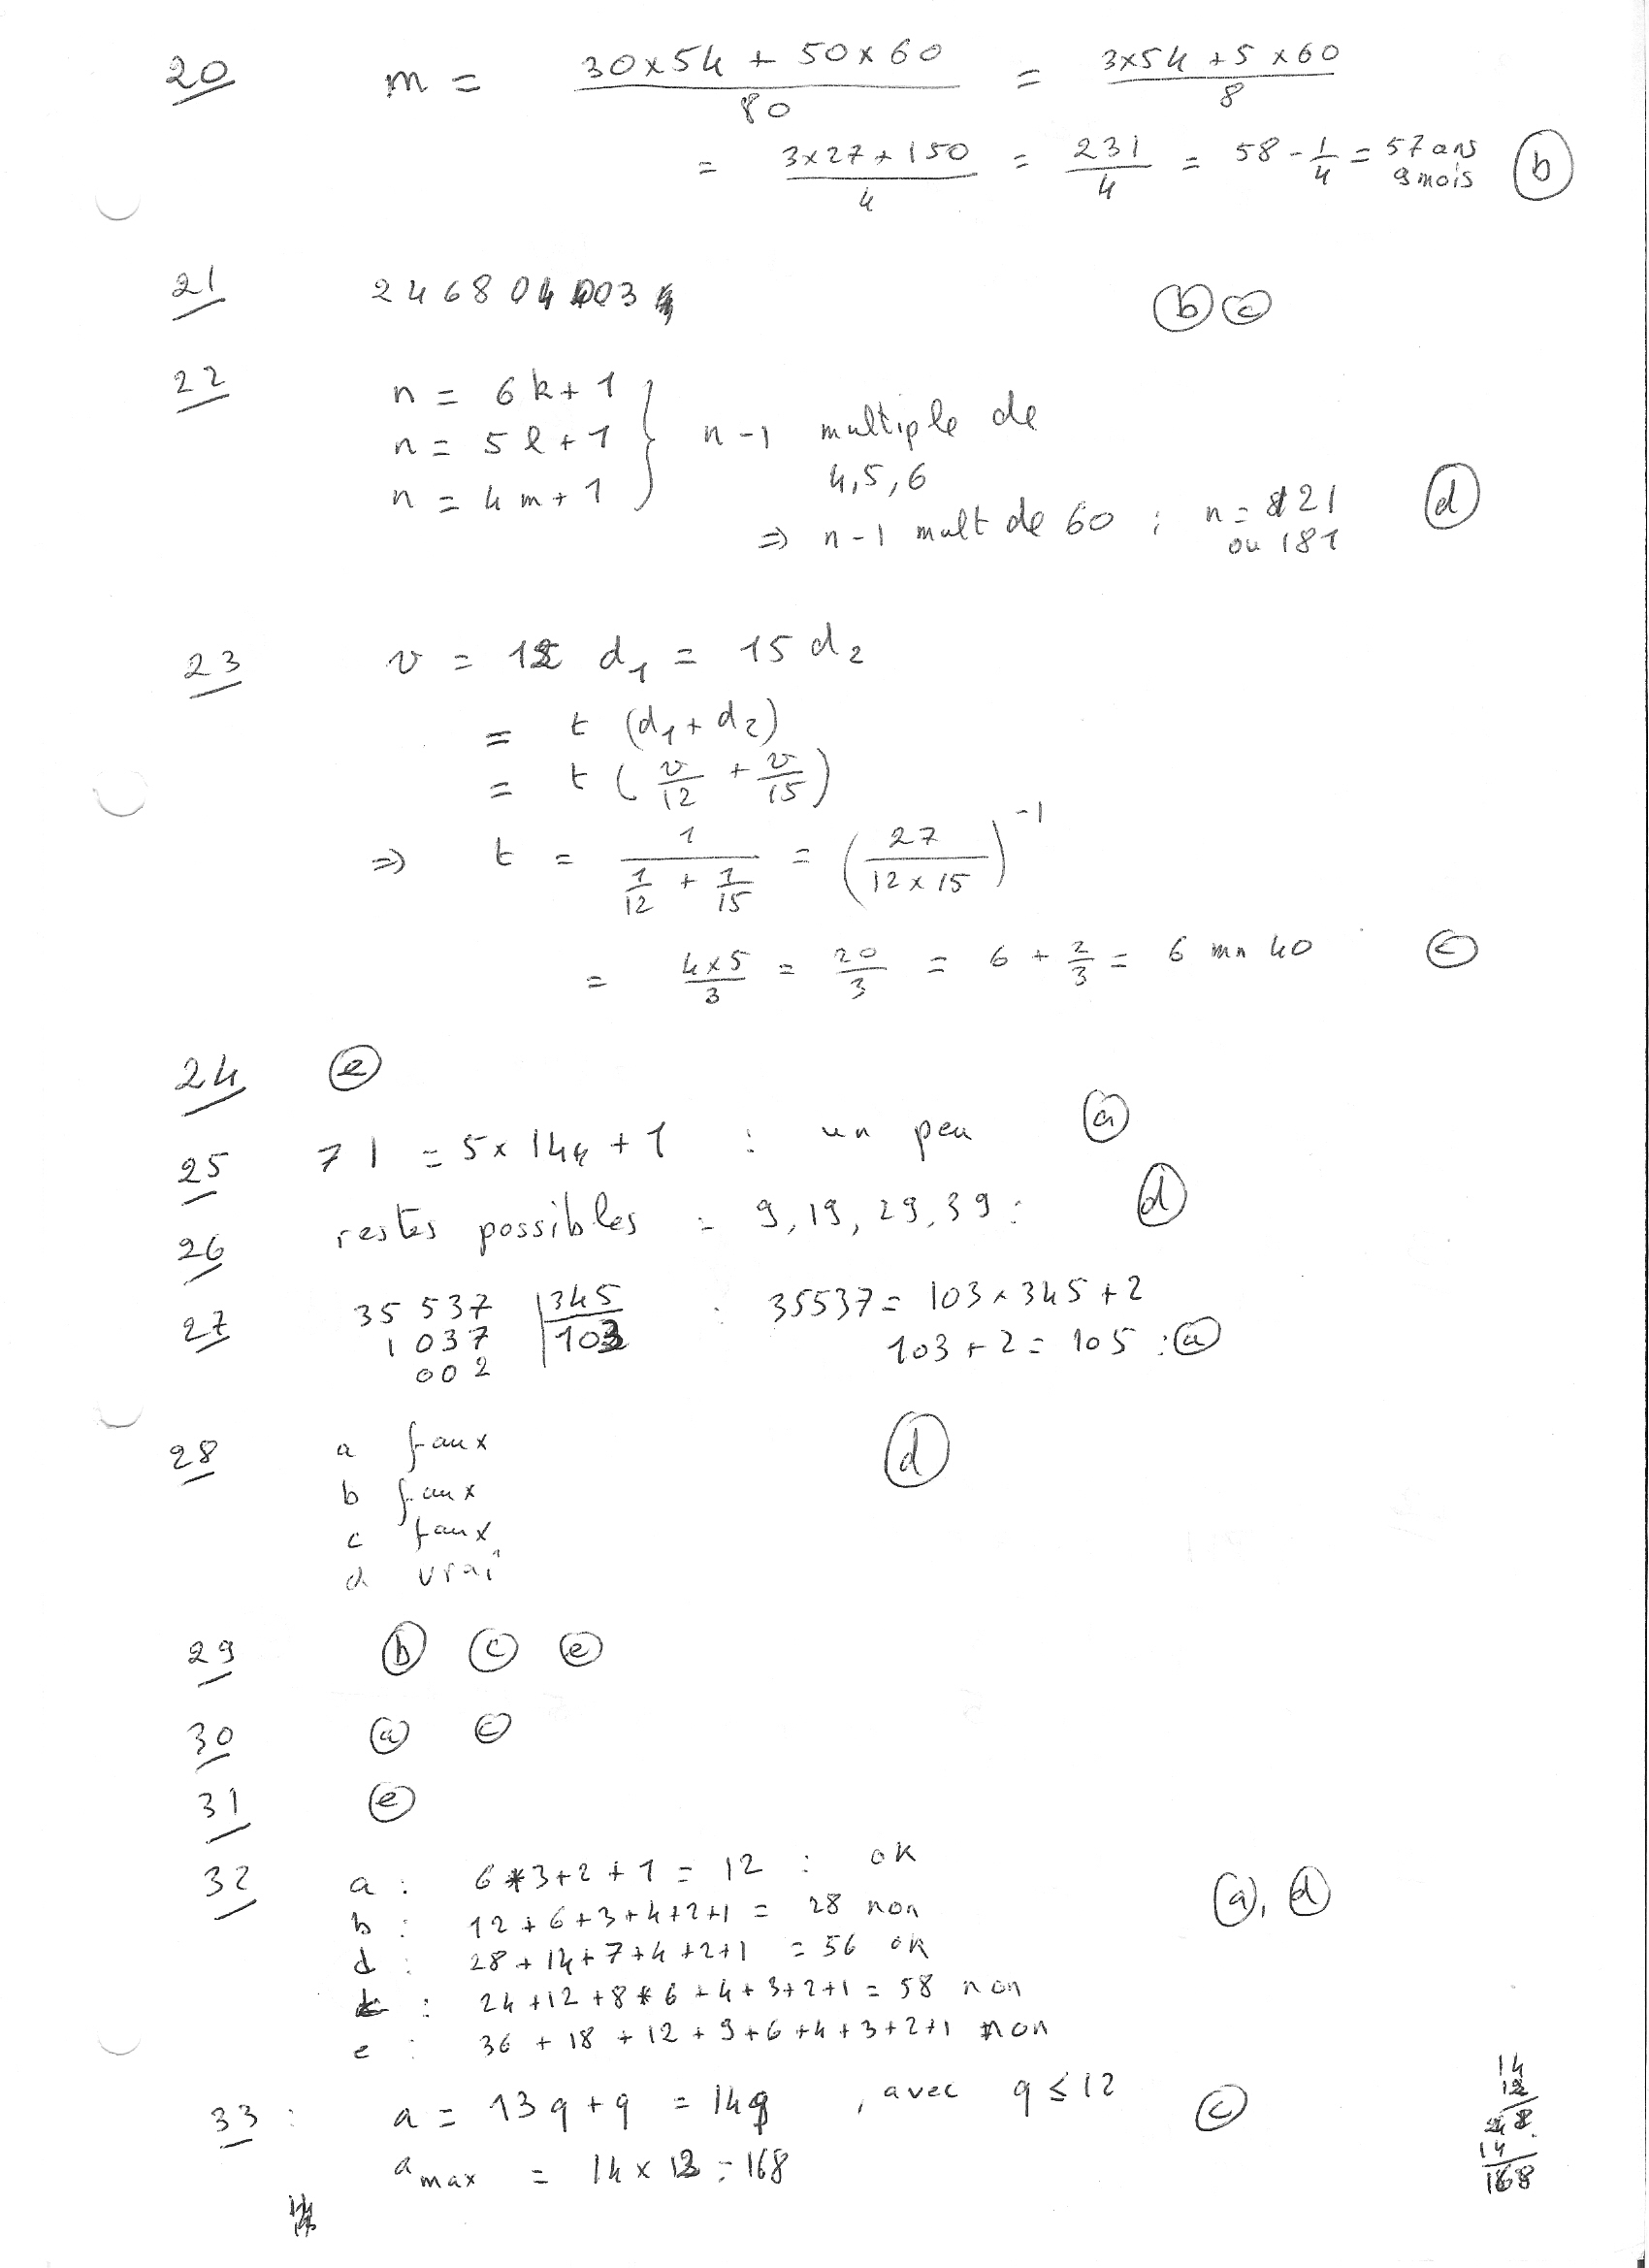 20 m = (30×54 + 50×60)/80 = (3×54 + 5×60)/8
= (3×27 + 150)/4 = 231/4 = 58 - 1/4 = 57 ans 9 mois (b)
21 246804003 (b) (c)
22 n = 6k + 1
n = 5l + 1 } n-1 multiple de
n = 4m + 1 4,5,6
⇒ n-1 mult de 60 ; n = 121 (d)
ou 181
23 v = 12 d1 = 15 d2
= t (d1 + d2)
= t (v/12 + v/15)
⇒ t = 1/(1/12 + 1/15) = (27/(12×15))^-1
= (4×5)/3 = 20/3 = 6 + 2/3 = 6 mn 40 (c)
24 (e)
25 71 = 5×14 + 1 : un peu (a)
26 restes possibles = 9, 19, 29, 39 : (d)
27 35 537 | 345 : 35537 = 103×345+2
1 037 | 103 103 + 2 = 105 : (a)
002
28 a faux (d)
b faux
c faux
d vrai
29 (b) (c) (e)
30 (a) (c)
31 (e)
32 a : 6+3+2+1 = 12 : ok (a), (d)
b : 12+6+3+4+2+1 = 28 non
d : 28+14+7+4+2+1 = 56 ok
: 24+12+8+6+4+3+2+1 = 58 non
e : 36+18+12+9+6+4+3+2+1 non
33 : a = 13q + q = 14q , avec q ≤ 12 (c)
a max = 14 × 12 = 168
14
12
28
14.
168